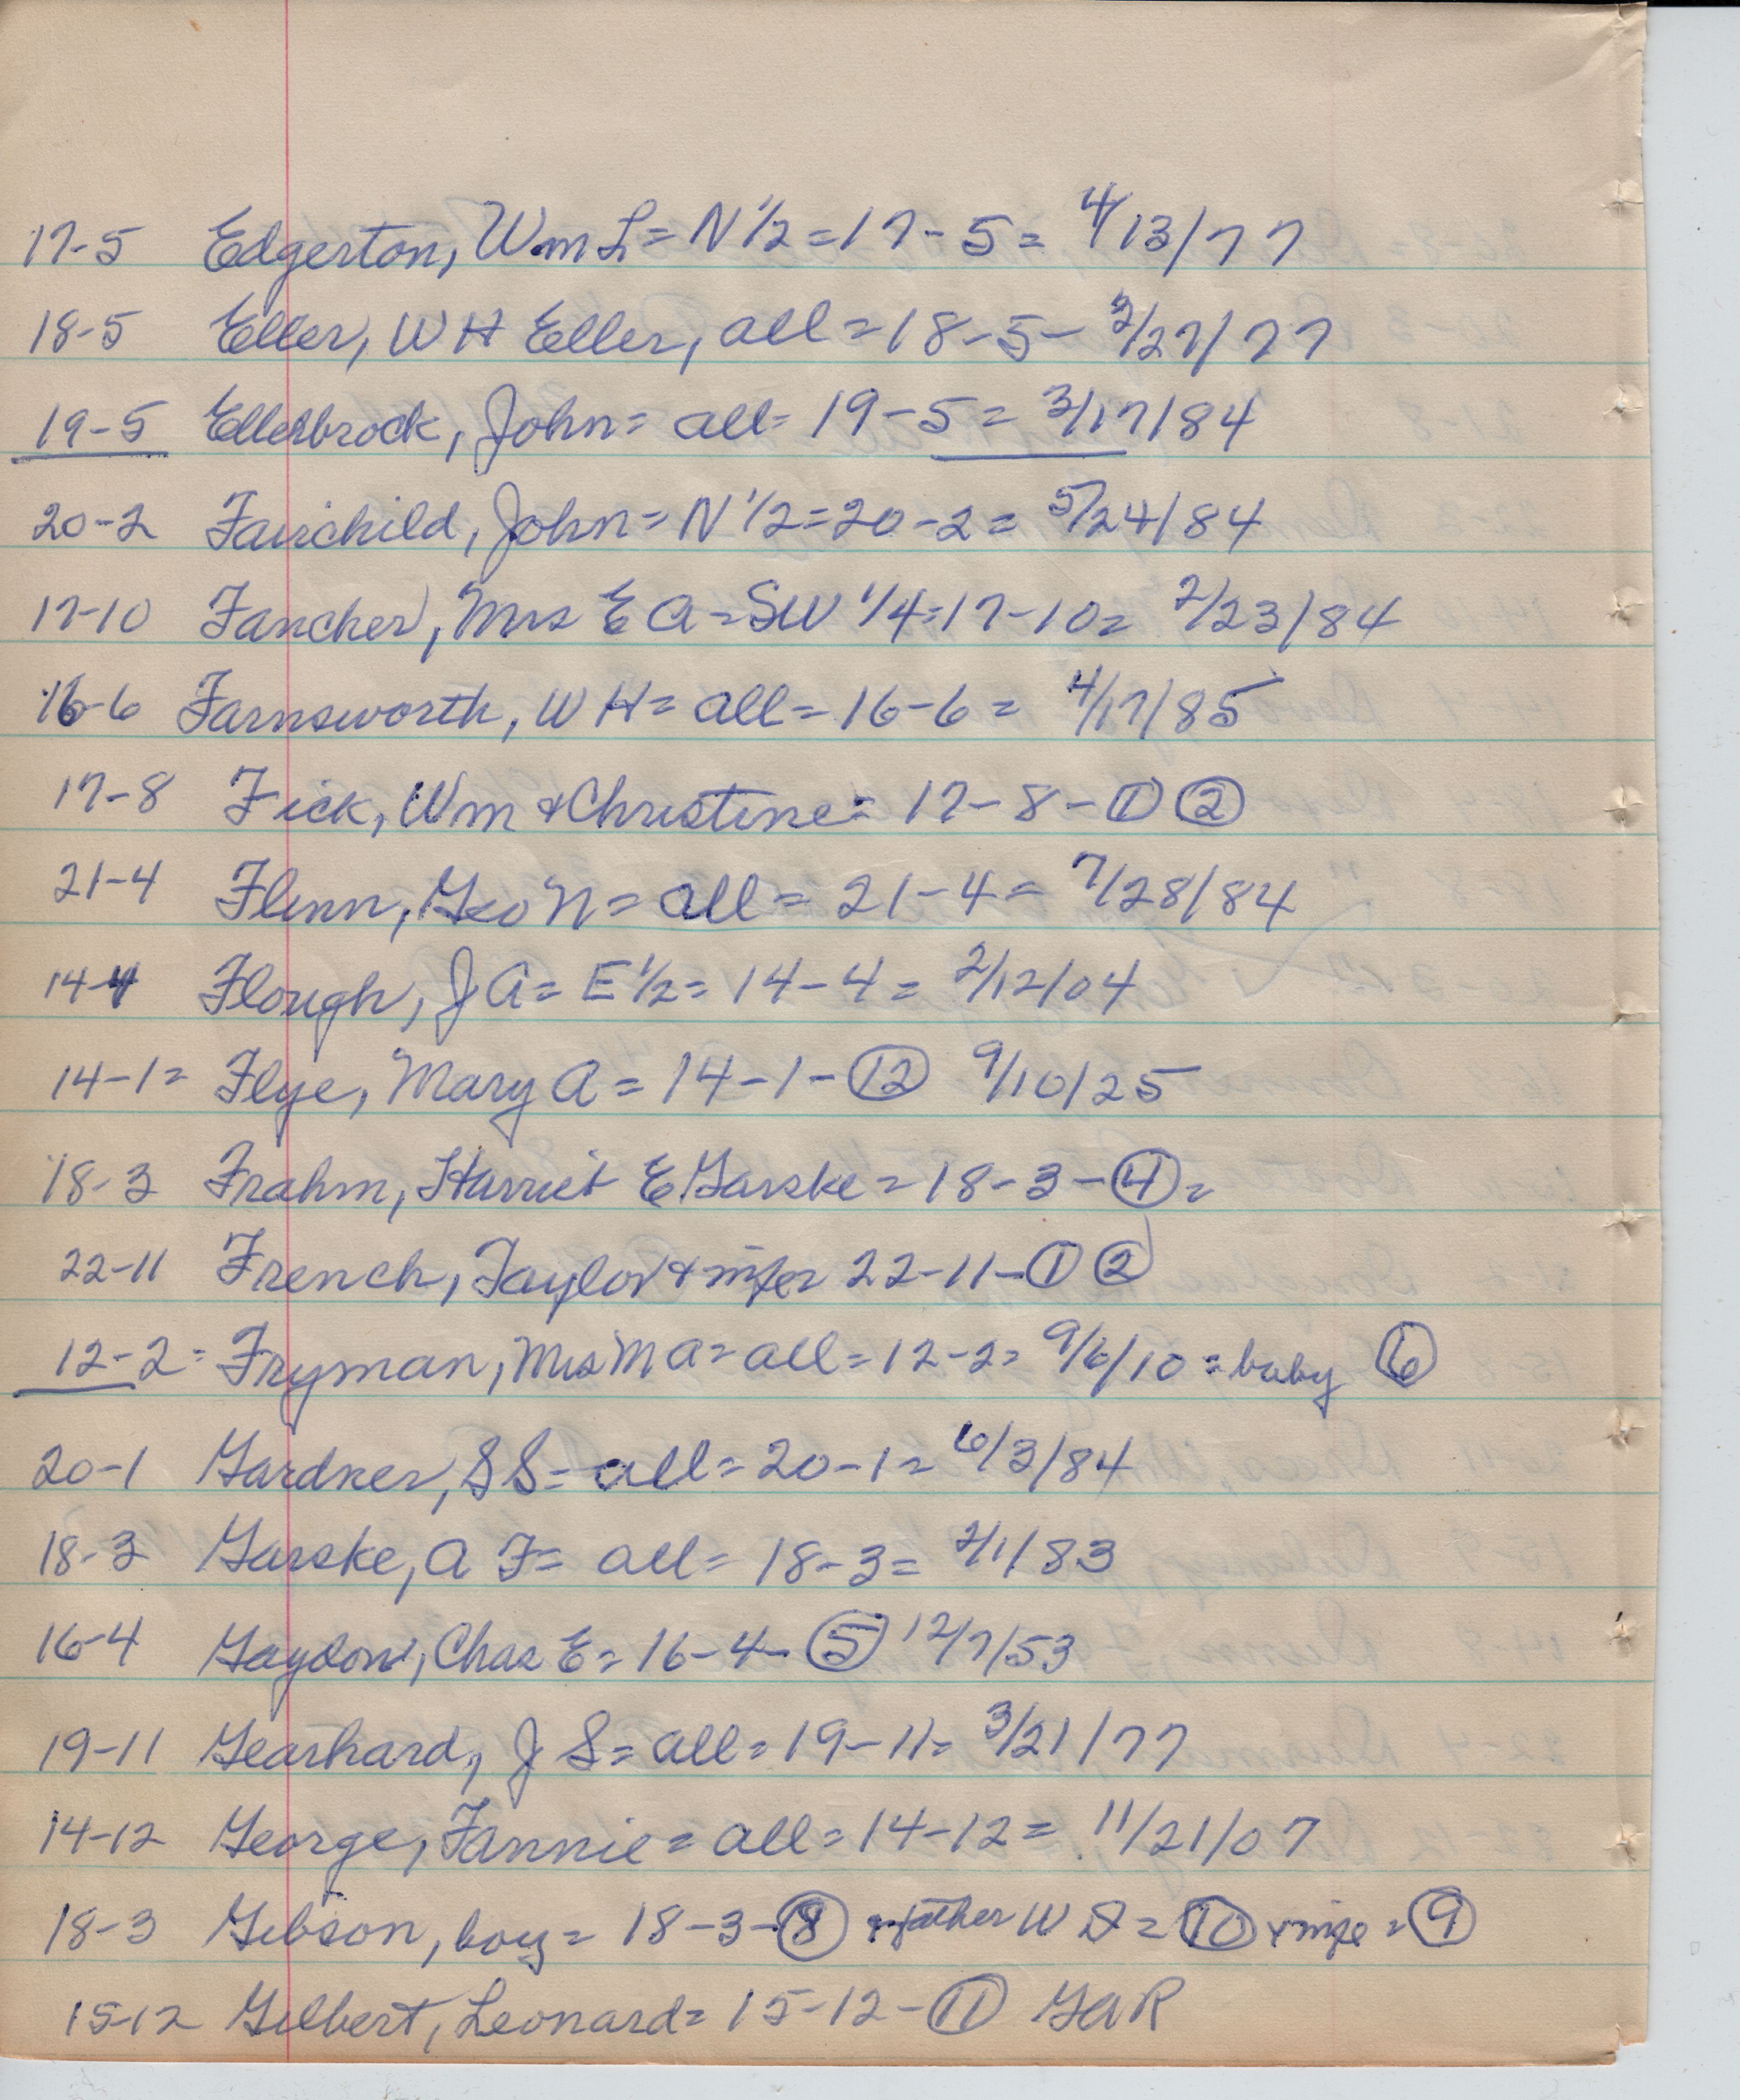 17-5 Edgerton, Wm L = N 1/2 = 17-5 = 4/13/77
18-5 Eller, W H Eller, all = 18-5 - 3/27/77
19-5 Ellerbrock, John = all = 19-5 = 3/17/84
20-2 Fairchild, John = N 1/2 = 20-2 = 5/24/84
17-10 Fancher, Mrs E A = SW 1/4 = 17-10 = 2/23/84
16-6 Farnsworth, W H = all = 16-6 = 4/17/85
17-8 Fick, Wm & Christine = 17-8 - ① ②
21-4 Flinn, Geo N = all = 21-4 = 7/28/84
14-4 Flough, J A = E 1/2 = 14-4 = 2/12/04
14-1 = Flye, Mary A = 14-1 - ⑫ 9/10/25
18-3 Frahm, Harriet E Garske = 18-3 - ④ =
22-11 French, Taylor & wife 22-11 - ① ②
12-2 = Fryman, Mrs M A = all = 12-2 = 9/6/10 = baby ⑥
20-1 Gardner, S S = all = 20-1 = 6/3/84
18-3 Garske, A F = all = 18-3 = 2/1/83
16-4 Gaydon, Chas E = 16-4 - ⑤ 12/7/53
19-11 Gearhard, J S = all = 19-11 = 3/21/77
14-12 George, Fannie = all = 14-12 = 11/21/07
18-3 Gibson, boy = 18-3 - ⑧ father W = ⑩ & wife = ⑨
15-12 Gilbert, Leonard = 15-12 - ⑪ GAR